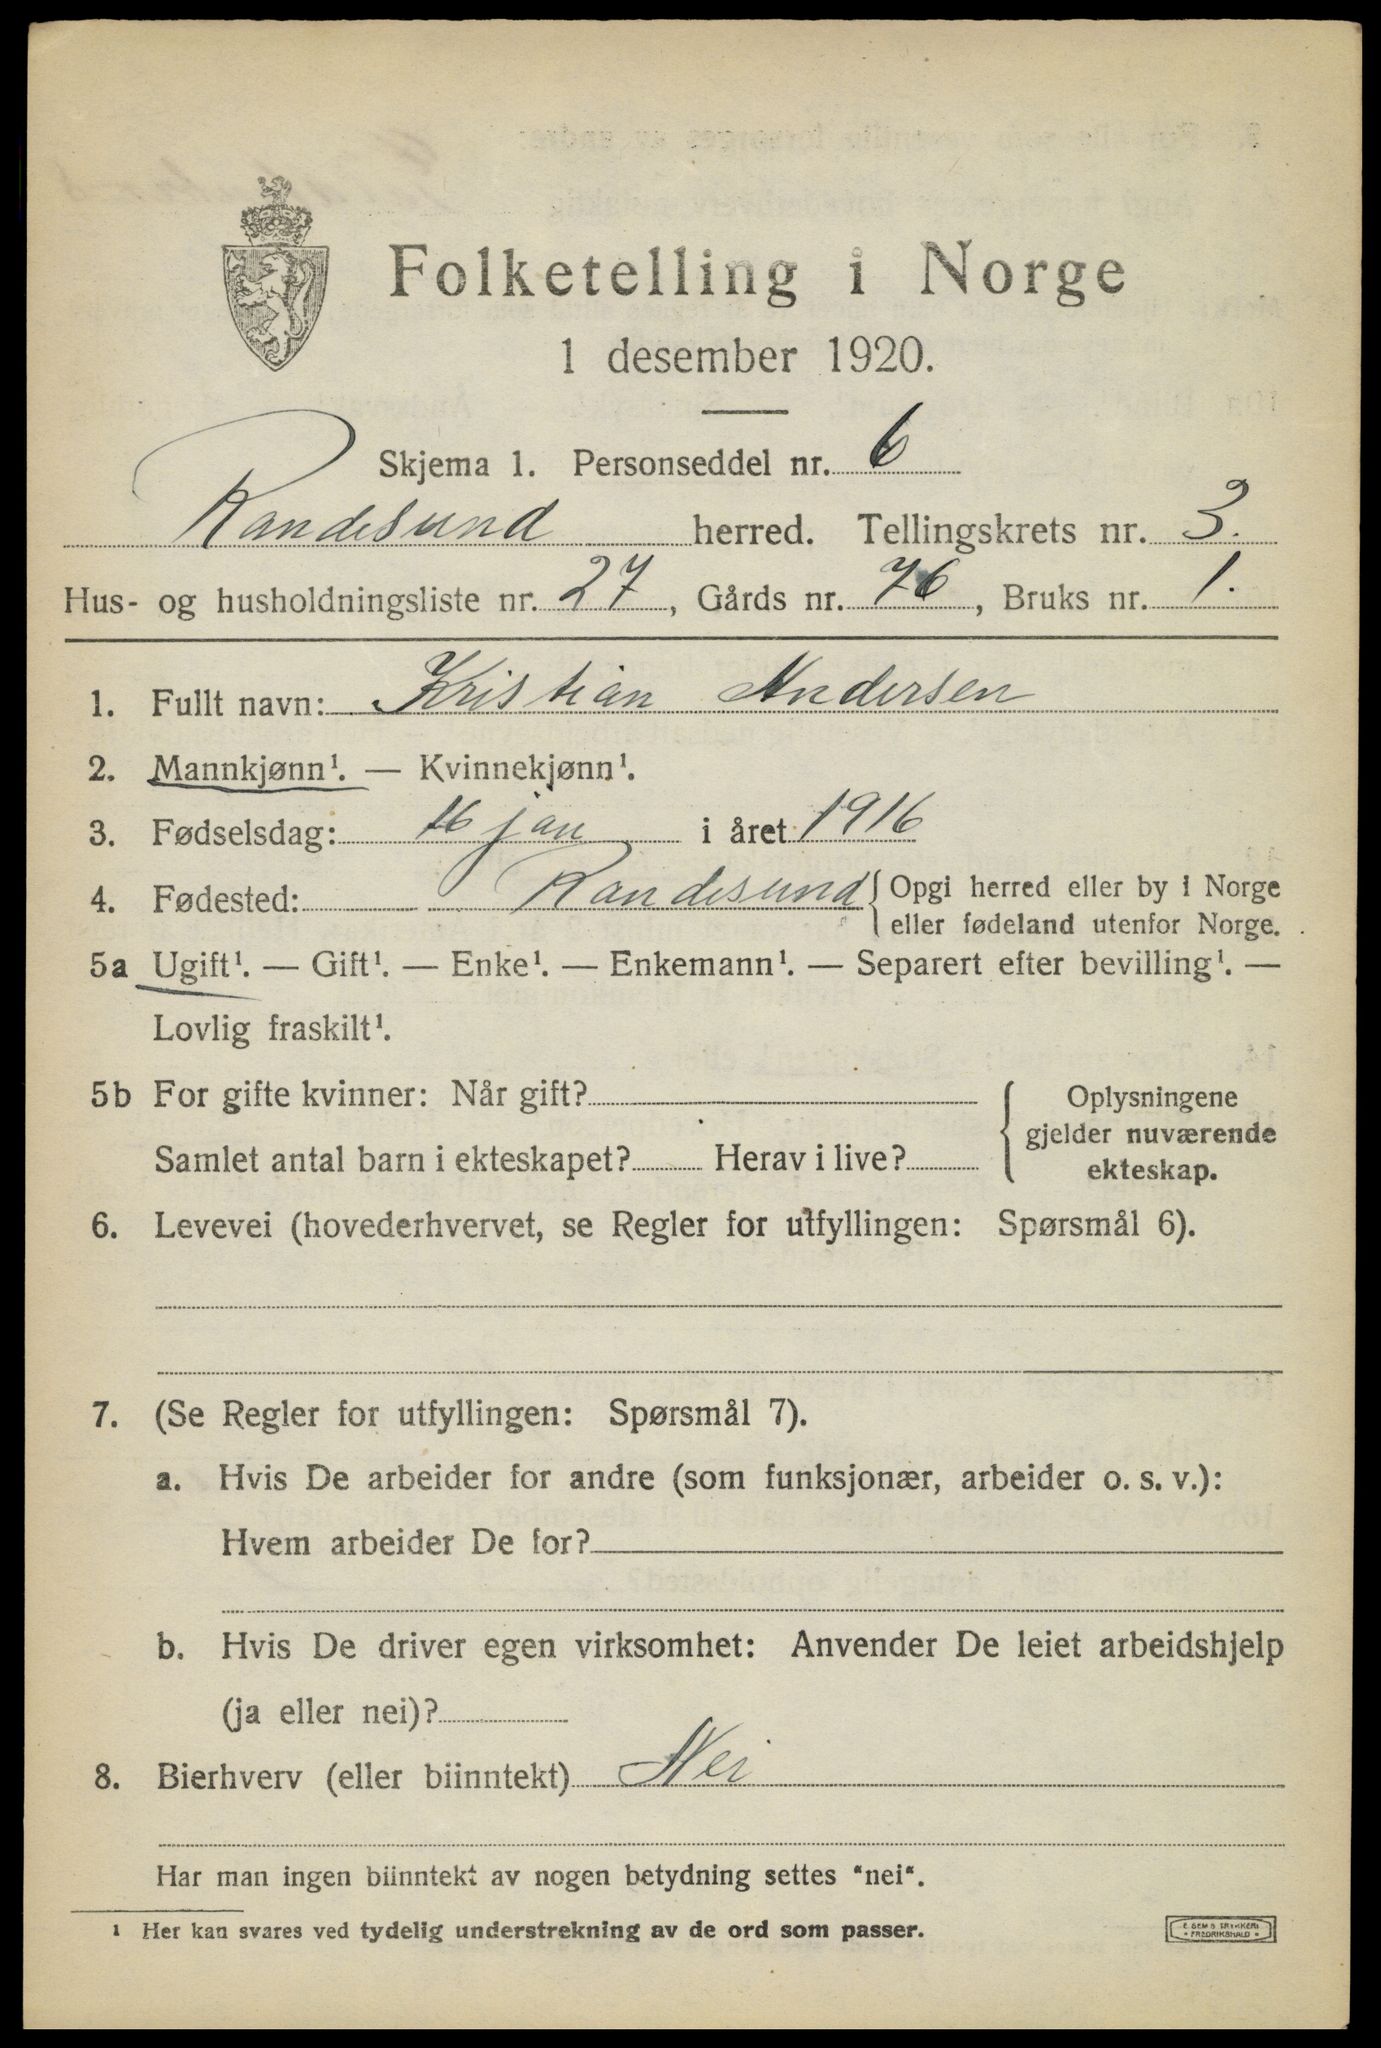 Folketelling i Norge
1 desember 1920.
Skjema 1. Personseddel nr. 6
Randesund herred. Tellingskrets nr. 3.
Hus- og husholdningsliste nr. 27, Gårds nr. 76, Bruks nr. 1.
1. Fullt navn: Kristian Andersen
2. Mannkjønn¹. — Kvinnekjønn¹.
3. Fødselsdag: 16 jan i året 1916
4. Fødested: Randesund { Opgi herred eller by i Norge
eller fødeland utenfor Norge.
5a Ugift¹. — Gift¹. — Enke¹. — Enkemann¹. — Separert efter bevilling¹. —
Lovlig fraskilt¹.
5b For gifte kvinner: Når gift?
Samlet antal barn i ekteskapet? Herav i live?
{ Oplysningene
gjelder nuværende
ekteskap.
6. Levevei (hovederhvervet, se Regler for utfyllingen: Spørsmål 6).
7. (Se Regler for utfyllingen: Spørsmål 7).
a. Hvis De arbeider for andre (som funksjonær, arbeider o. s. v.):
Hvem arbeider De for?
b. Hvis De driver egen virksomhet: Anvender De leiet arbeidshjelp
(ja eller nei)?
8. Bierhverv (eller biinntekt) Nei
Har man ingen biinntekt av nogen betydning settes "nei".
¹ Her kan svares ved tydelig understrekning av de ord som passer.
E. SEM'S TRYKKERI
FREDRIKSHALD